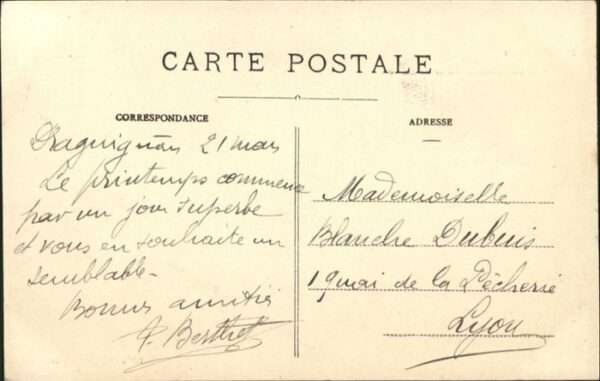 CARTE POSTALE
CORRESPONDANCE
ADRESSE
Draguignan 21 mars
Le printemps commence
par un jour superbe
et vous en souhaite un
semblable-
Bonnes amitiés
P. Berthet
Mademoiselle
Blanche Dubuis
19 quai de la Pêcherie
Lyon